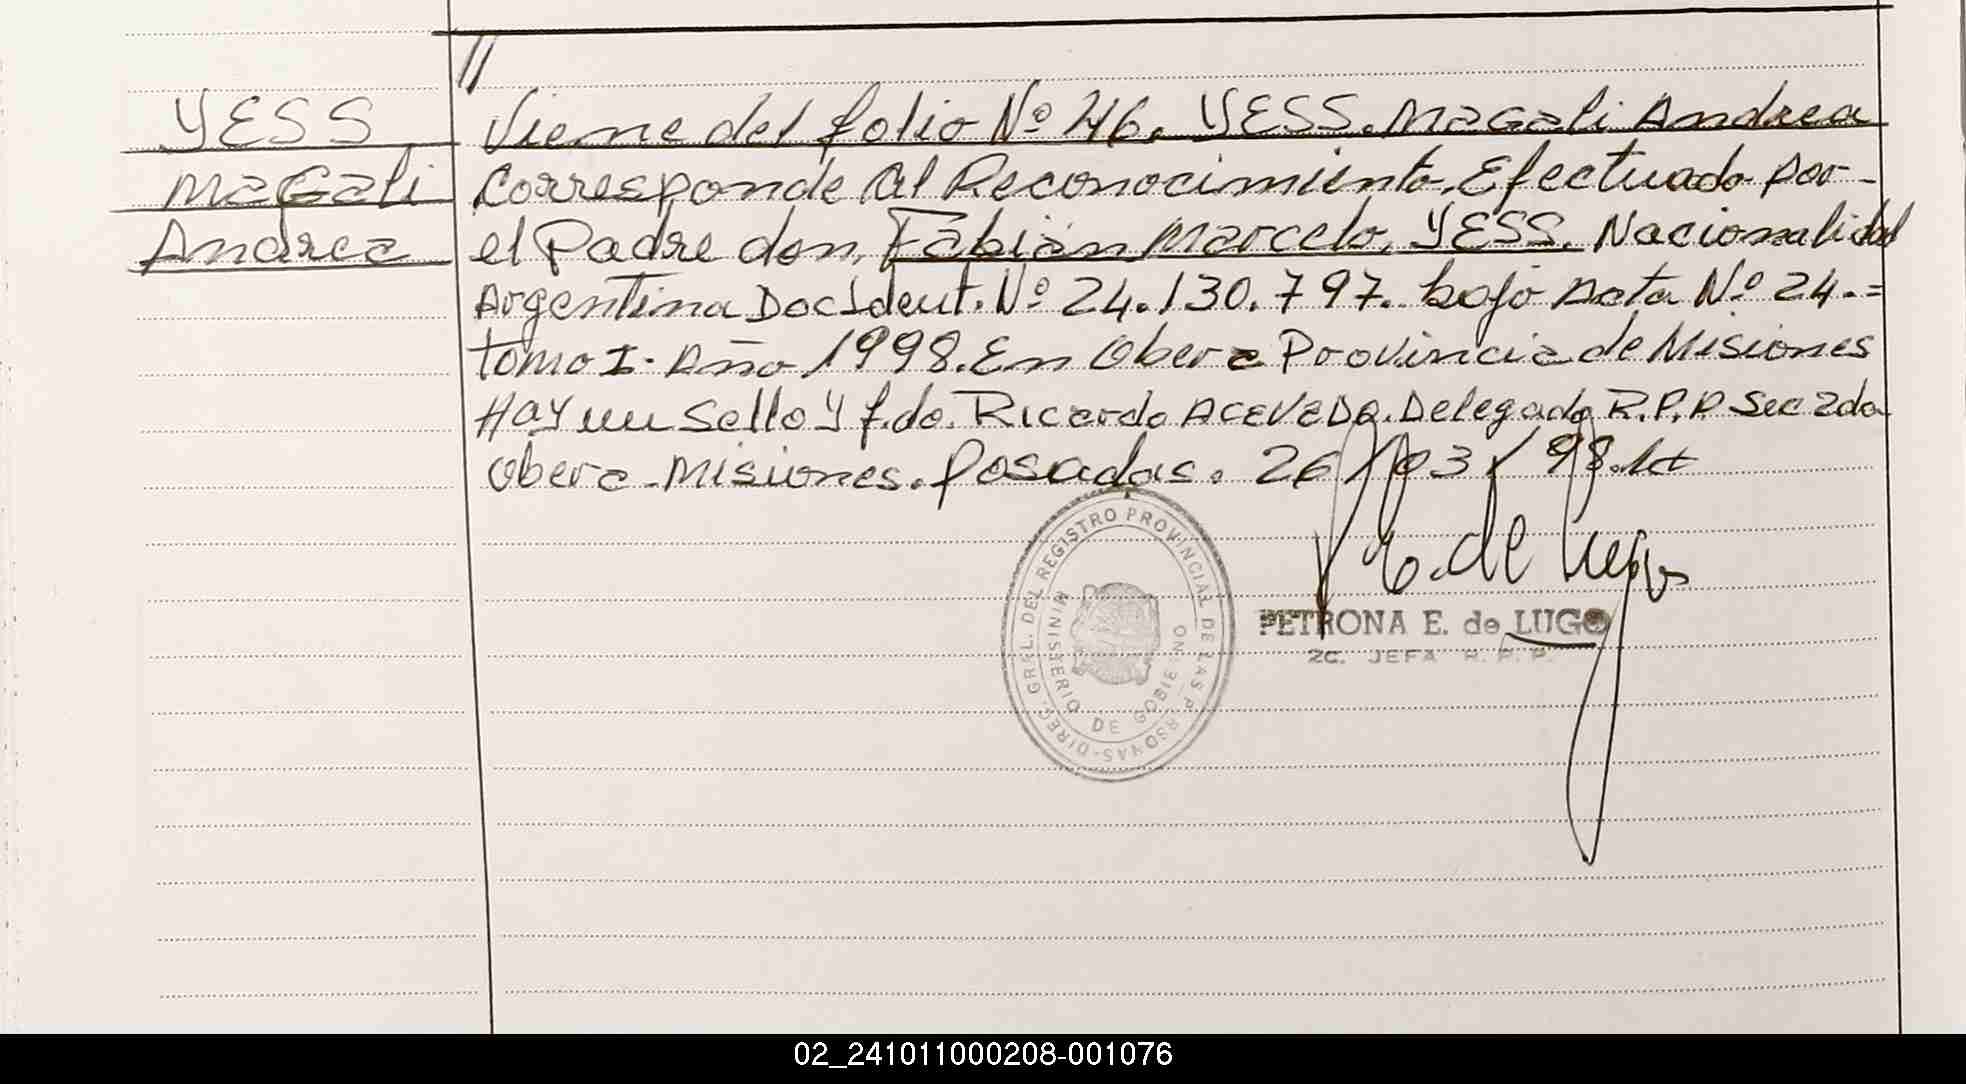 //
YESS
Magali
Andrea
Viene del folio Nº 246. YESS. Magali Andrea
Corresponde al Reconocimiento. Efectuado por-
el Padre don, Fabián Marcelo, YESS. Nacionalidad
Argentina Doc Ident. Nº 24.130.797. bajo Acta Nº 24.=
tomo I. Año 1998. En Obera Provincia de Misiones
Hay un Sello y f.do. Ricardo ACEVEDO. Delegado R.P.P Sec 2da
Obera-Misiones. Posadas. 26/03/98.
P. E. de Lugo
DIREC. GRAL. DEL REGISTRO PROVINCIAL DE LAS P RSONAS-
MINISTERIO DE GOBIE NO
PETRONA E. de LUGO
2C. JEFA R. P. P.
02_241011000208-001076